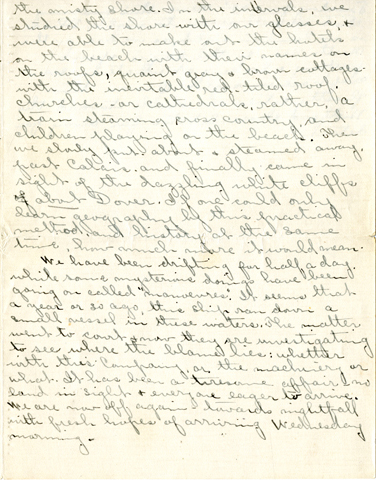 the misty shore. In the intervals, we
studied the shore with our glasses, &
were able to make out the hotels
on the beach with their names on
the roofs, quaint gray & brown cottages
with the inevitable red-tiled roof.
Churches - or cathedrals, rather, a
train steaming cross country, and
children playing on the beach. Then
we slowly put about & steamed away,
past Calais, and finally came in
sight of the dazzling white cliffs
of about Dover. If one could only
learn geography by this practical
method, and history at the same
time, how much more it would mean.
We have been drifting for half a day
while some mysterious doings have been
going on called "maneuvres." It seems that
a year or so ago, this ship ran down a
small vessel in these waters. The matter
went to court, & now they are investigating
to see where the blame lies: whether
with this Company, or the machinery or
what. It has been a tiresome affair: no
land in sight & everyone eager to arrive.
We are now off again towards nightfall
with fresh hopes of arriving Wednesday
morning.